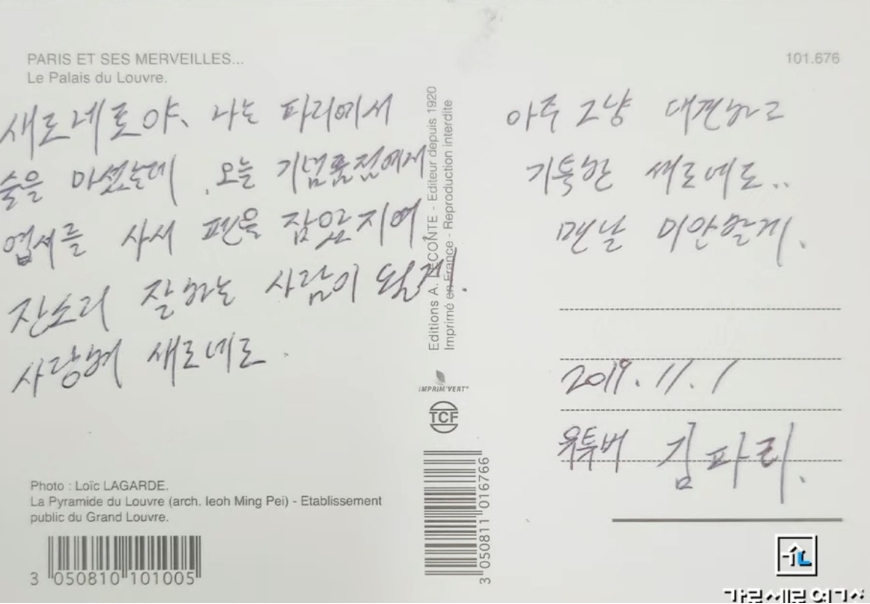 PARIS ET SES MERVEILLES...
Le Palais du Louvre.
101.676
새로네로야, 나는 파리에서
술을 마셨는데, 오늘 기념품점에서
엽서를 사서 펜을 잡았지에
잔소리 잘하는 사람이 될게!
사랑해 새로네로.
아주 그냥 대견하고
기특한 새로네로..
맨날 미안할게.
2019. 11. 1
유투버 김파리.
Editions A. LECONTE - Editeur depuis 1920
Imprimé en France - Reproduction interdite
IMPRIM'VERT®
TCF
Photo : Loïc LAGARDE.
La Pyramide du Louvre (arch. Ieoh Ming Pei) - Etablissement
public du Grand Louvre.
3 050810 101005
3 050811 016766
가로세로연구소